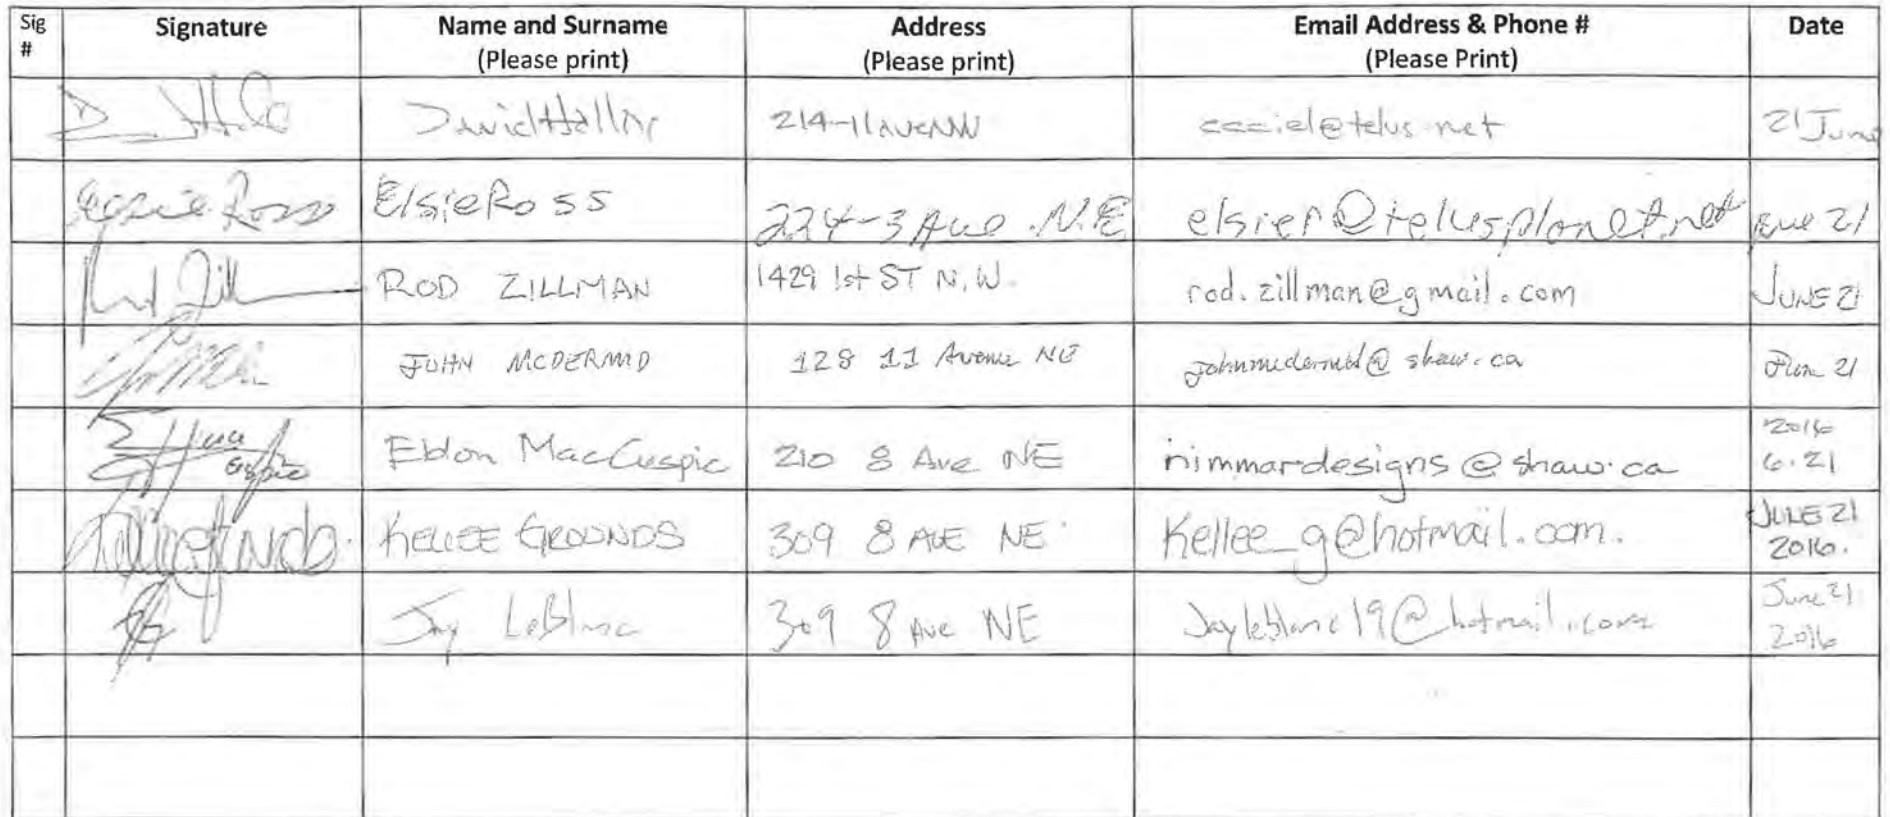 Sig # Signature Name and Surname (Please print) Address (Please print) Email Address & Phone # (Please Print) Date
214-11 Ave NW @telus.net 21 June
Elsie Ross Elsie Ross 224-3 Ave N.E elsier@telusplanet.net June 21
ROD ZILLMAN 1429 1st ST N.W. rod.zillman@gmail.com JUNE 21
JOHN MCDERMID 128 11 Avenue NE johnmcdermid@shaw.ca Jun 21
Eldon MacCuspic 210 8 Ave NE nimmardesigns@shaw.ca 2016 6.21
KELLEE GROUNDS 309 8 AVE NE Kellee_g@hotmail.com. JUNE 21 2016.
Jay LeBlanc 309 8 Ave NE Jayleblanc19@hotmail.com June 21 2016